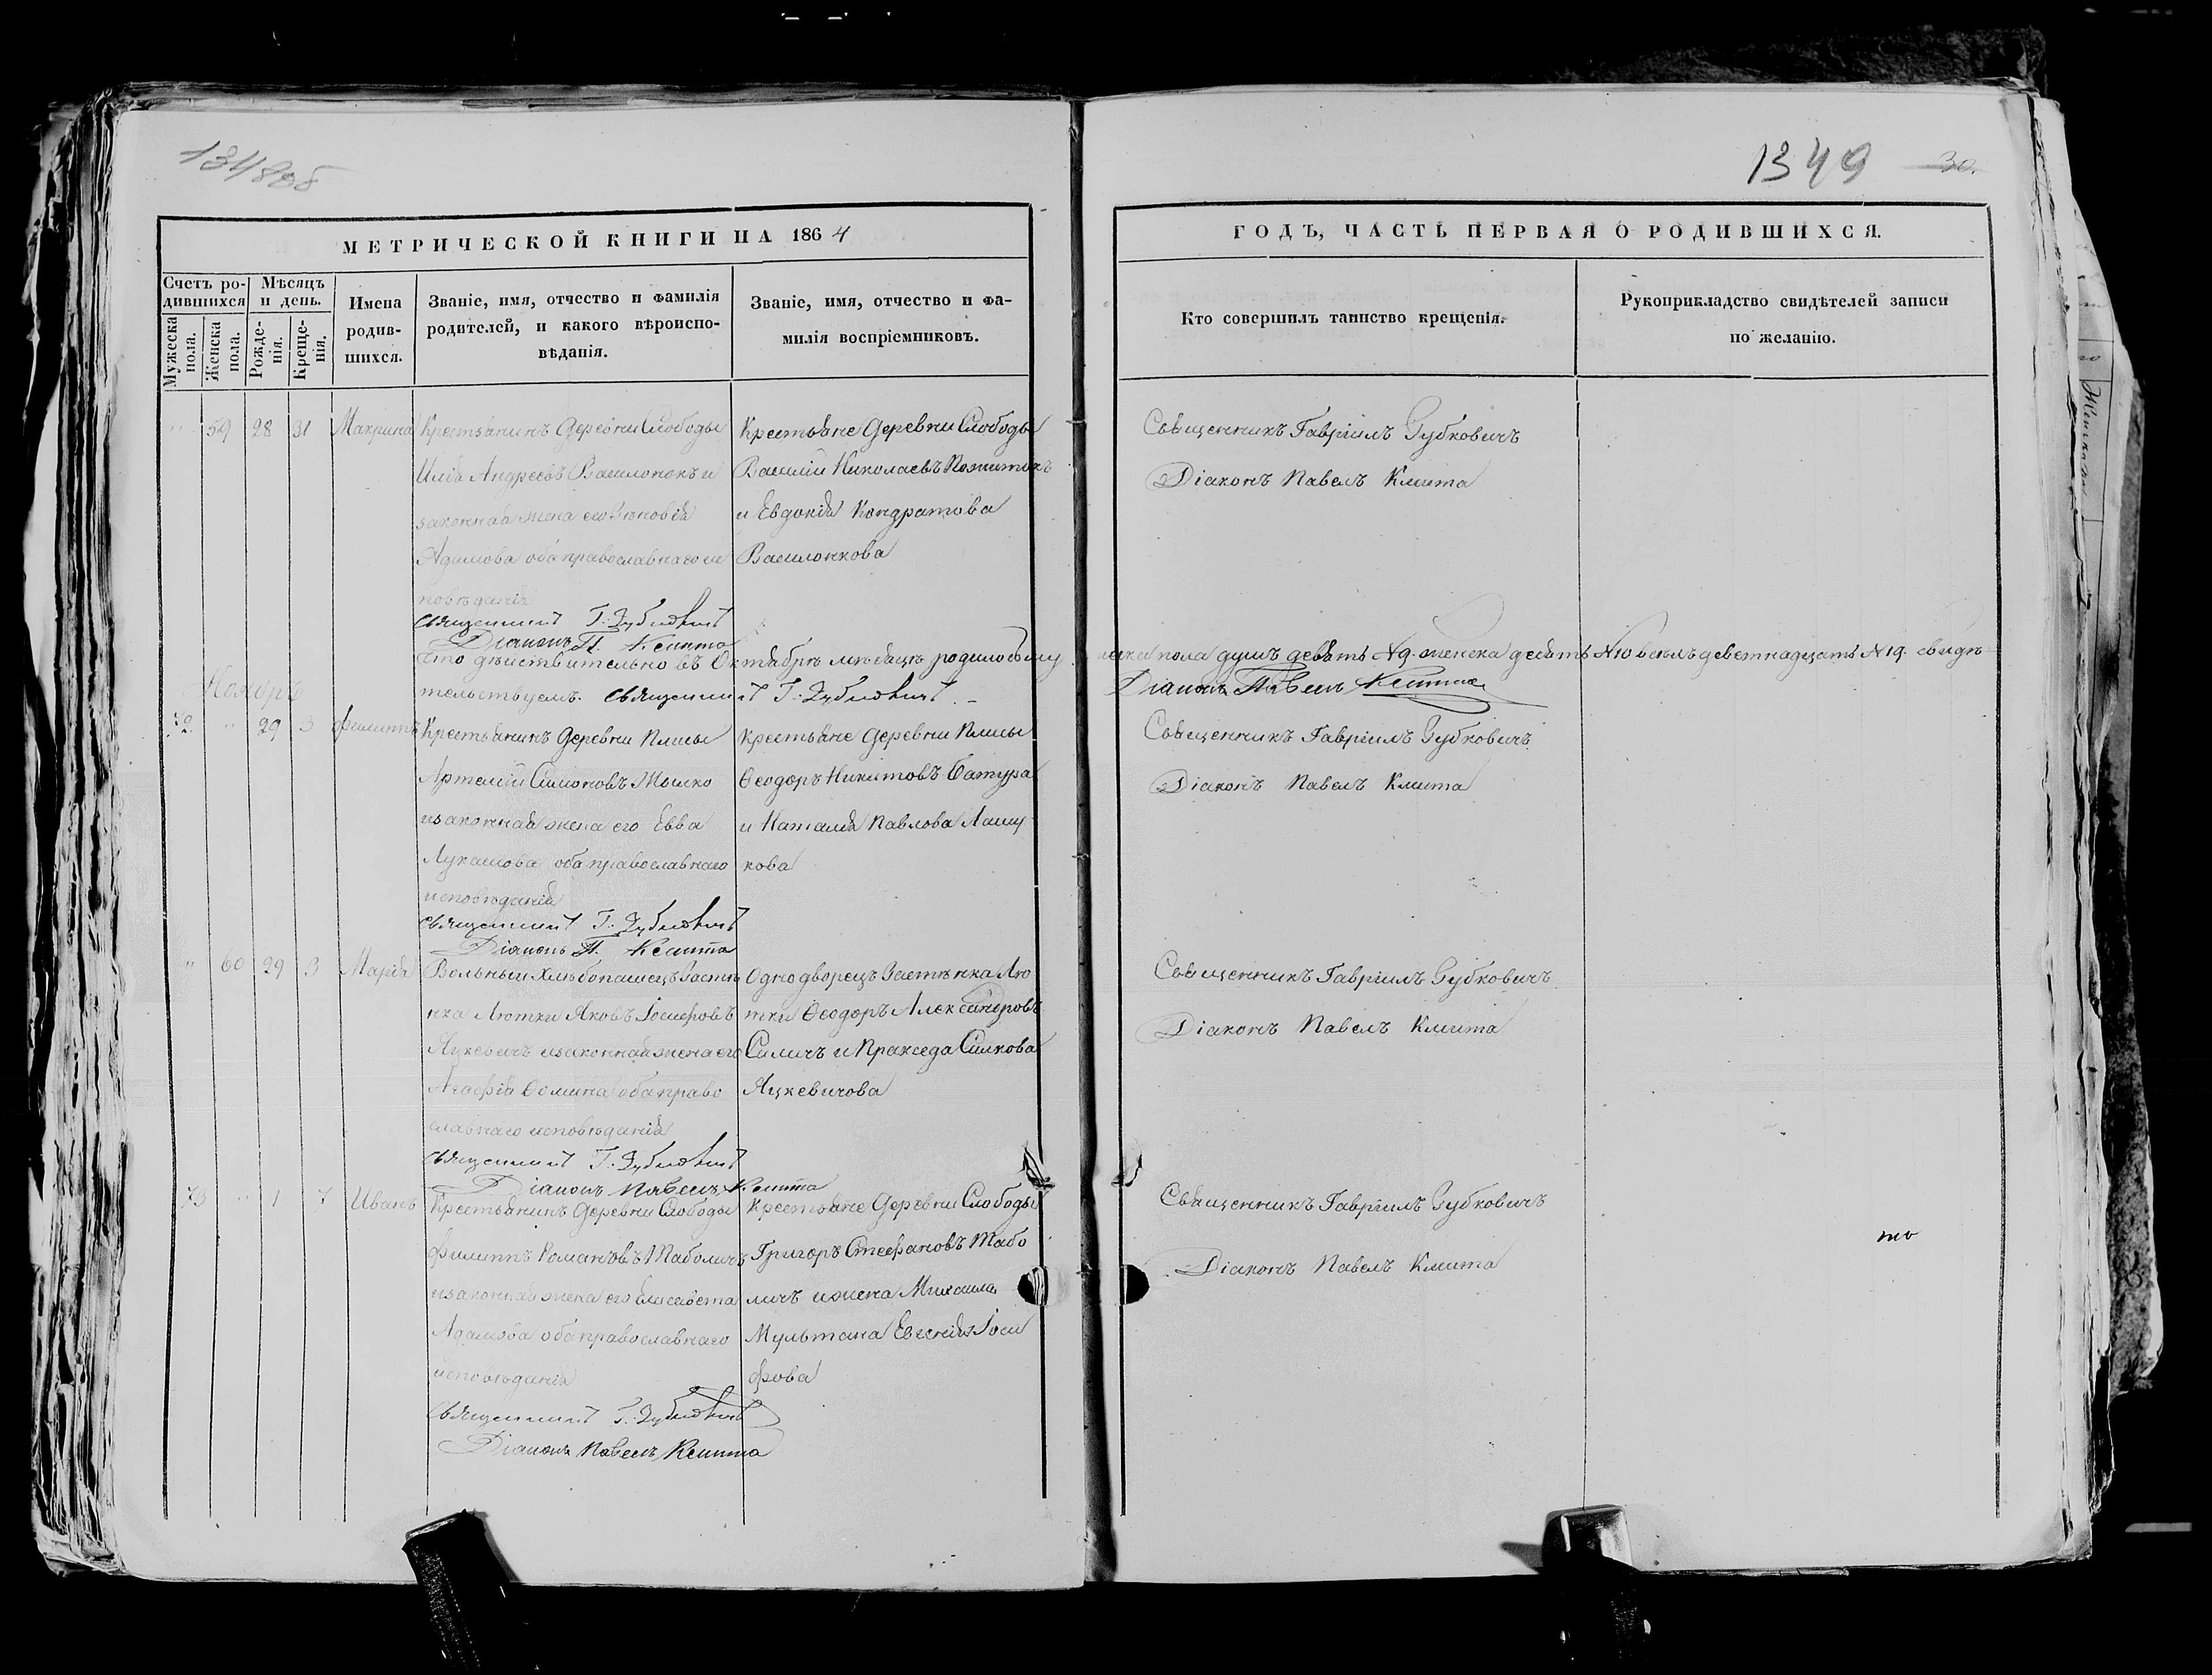 1349 30.
МЕТРИЧЕСКОЙ КНИГИ НА 1864
ГОДЪ, ЧАСТЬ ПЕРВАЯ О РОДИВШИХСЯ.
Счетъ ро-
дившихся
Мужеска пола.
Женска пола.
Мѣсяцъ
и день.
Рожде-
нія.
Креще-
нія.
Имена
родив-
шихся.
Званіе, имя, отчество и фамилія
родителей, и какого вѣроиспо-
вѣданія.
Званіе, имя, отчество и фа-
милія воспріемниковъ.
Кто совершилъ таинство крещенія.
Рукоприкладство свидѣтелей записи
по желанію.
59 28 31 Макрина
Крестьянинъ Деревни Слободы
Илья Андреевъ Василонокъ и
законная жена его
Адамова оба православнаго ис
повѣданія
Священникъ Г. Зубковичъ
Діаконъ П. Кмита
Крестьяне Деревни Слободы
Василій Николаевъ
и Евдокія Кондратова
Василонкова
Священникъ Гавріилъ Зубковичъ
Діаконъ Павелъ Кмита
Что дѣйствительно въ Октябрѣ мѣсяцѣ родилось му
жеска пола душъ девять №9. женска десять №10 всѣхъ деветнадцать №19. свидѣ
тельствуемъ. Священникъ Г. Зубковичъ.
Діаконъ Павелъ Кмита
Ноябрь
72 " 29 3 Филиппъ
Крестьянинъ Деревни Плисы
Артемій Симоновъ Мышко
и законная жена его Евва
Лукашова оба православнаго
исповѣданія
Священникъ Г. Зубковичъ
Діаконъ П. Кмита
Крестьяне Деревни Плисы
Ѳеодоръ Никитовъ Батура
и Наталія Павлова Лашу
кова
Священникъ Гавріилъ Зубковичъ
Діаконъ Павелъ Кмита
" 60 29 3 Марія
Вольный Хлѣбопашецъ Застѣ
нка Лютки Яковъ Іосифовъ
и законная жена его
Агафія Ѳомина оба право
славнаго исповѣданія
Священникъ Г. Зубковичъ
Діаконъ Павелъ Кмита
Однодворецъ Застѣнка Лю
тки Ѳеодоръ Александровъ
Силичъ и Пракседа
Яцкевичова
Священникъ Гавріилъ Зубковичъ
Діаконъ Павелъ Кмита
73 " 1 7 Иванъ
Крестьянинъ Деревни Слободы
Филиппъ Романовъ Таболичъ
и законная жена его Елисавета
Адамова оба православнаго
исповѣданія
Священникъ Г. Зубковичъ
Діаконъ Павелъ Кмита
Крестьяне Деревни Слободы
Григоръ Стефановъ Табо
личъ и жена Михаила
Мультана Евгенія Іоси
фова
Священникъ Гавріилъ Зубковичъ
Діаконъ Павелъ Кмита